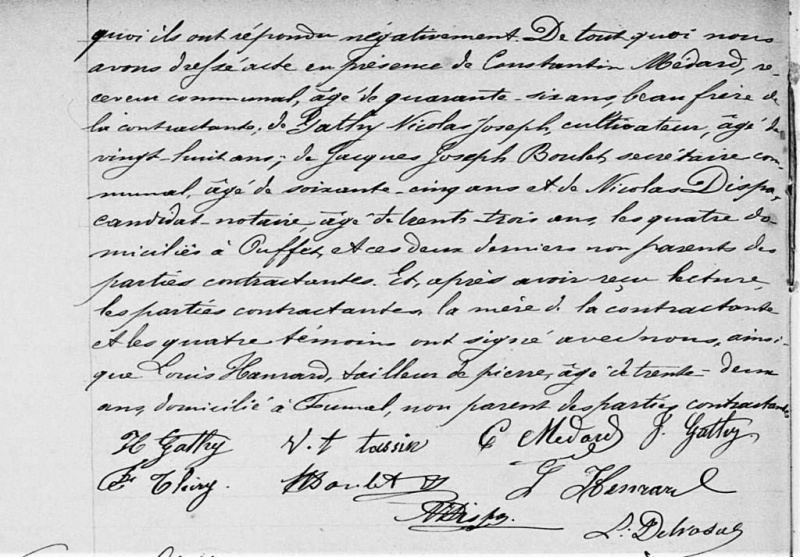 quoi ils ont répondu négativement. De tout quoi nous
avons dressé acte en présence de Constantin Médard, re-
ceveur communal, âgé de quarante-six ans, beau frère de
la contractante; de Gathy Nicolas Joseph, cultivateur, âgé de
vingt-huit ans; de Jacques Joseph Boulet, secrétaire com-
munal, âgé de soixante-cinq ans et de Nicolas Dispa,
candidat-notaire, âgé de trente-trois ans, les quatre do-
miciliés à Ouffet, et ces deux derniers non parents des
parties contractantes. Et, après avoir reçu lecture,
les parties contractantes, la mère de la contractante
et les quatre témoins ont signé avec nous, ainsi
que Louis Hanrard, tailleur de pierre, âgé de trente-deux
ans, domicilié à, non parent des parties contractantes
H Gathy V. t tassin C Médard J. Gathy
F Thiry. Boulet L Henrard
NDispa.
L: